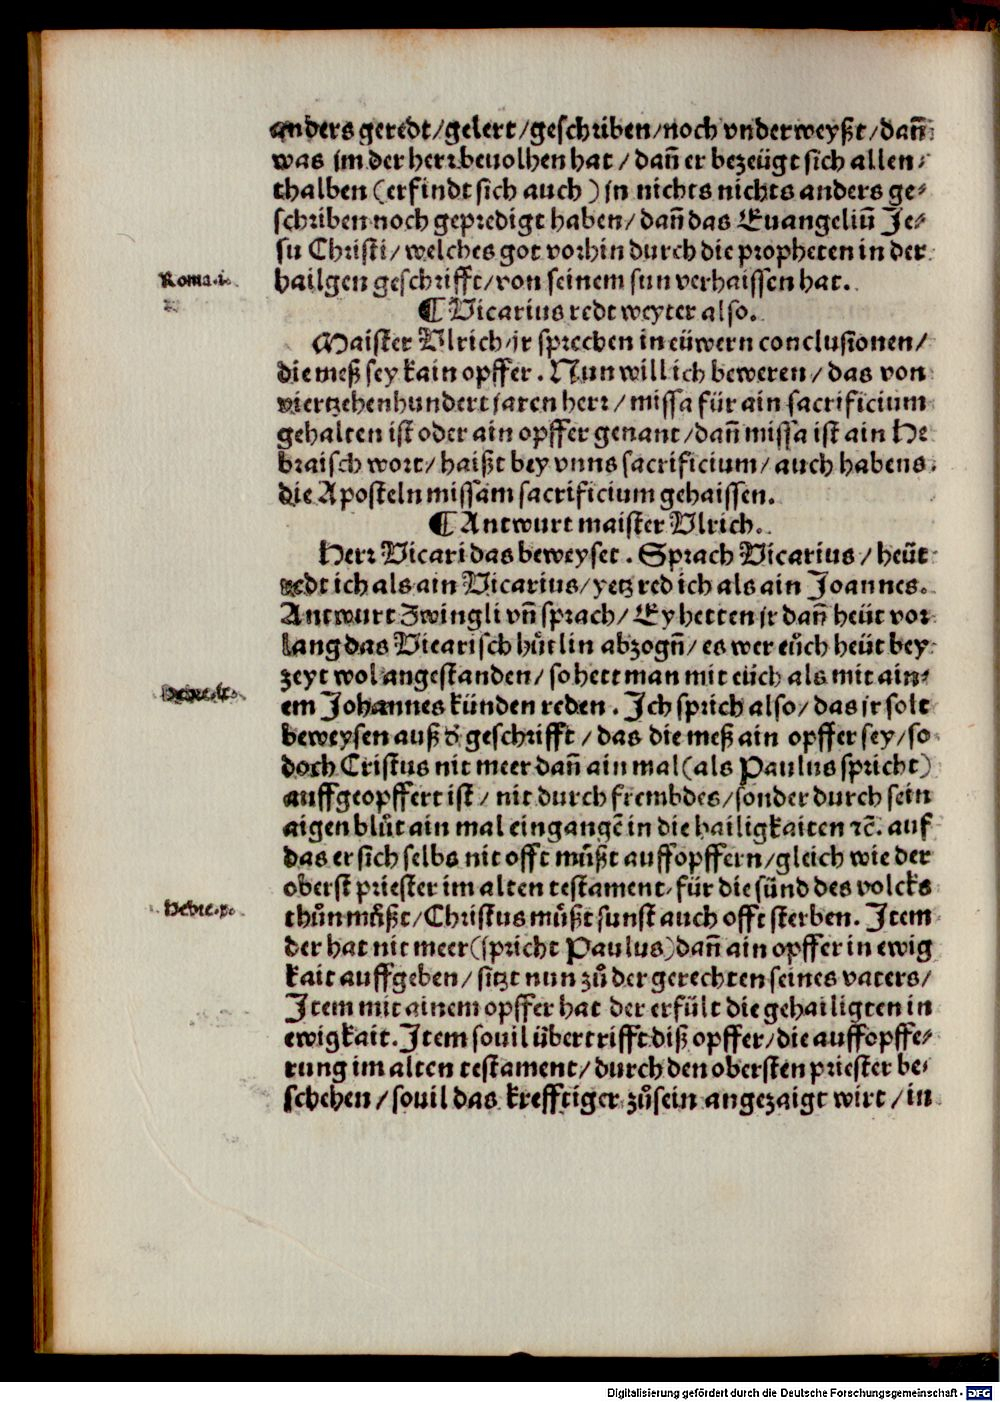 anders geredt/gelert/geschriben/noch vnderweyßt/dañ
was jm der herr beuolhen hat/dañ er bezeügt sich allen⸗
thalben (erfindt sich auch) jn nichts nichts anders ge⸗
schriben noch gepredigt haben/dañ das Euangeliũ Je⸗
su Christi/welches got vorhin durch die propheten in der
Roma.i.
hailgen geschrifft/von seinem sun verhaissen hat.
¶ Vicarius redt weyter also.
Maister Vlrich/jr sprechen in eüwern conclusionen/
die meß sey kain opffer. Nun will ich beweren/das von
viertzehenhundert jaren herr/missa für ain sacrificium
gehalten ist oder ain opffer genant/dañ missa ist ain He
braisch wort/haißt bey vnns sacrificium/auch habens
die Aposteln missam sacrificium gehaissen.
¶ Antwurt maister Vlrich.
Herr Vicari das beweyset. Sprach Vicarius/heüt
redt ich als ain Vicarius/yetz red ich als ain Joannes.
Antwurt Zwingli vñ sprach/Ey hetten jr dañ heüt vor
lang das Vicarisch huͤtlin abzogñ/es wer eüch heüt bey
zeyt wol angestanden/so hett man mit eüch als mit ain⸗
Hebre.ix.
em Johannes künden reden. Ich sprich also/das jr solt
beweysen auß d̕ geschrifft/das die meß ain opffer sey/so
doch Cristus nit meer dañ ain mal (als Paulus spricht)
auffgeopffert ist/nit durch frembdes/sonder durch sein
aigen bluͦt ain mal eingangẽ in die hailigkaiten ꝛc̃. auf
das er sich selbs nit offt muͤßt auffopffern/gleich wie der
oberst priester im alten testament/für die sünd des volcks
Hebre.x.
thuͦn muͤßt/Christus muͤßt sunst auch offt sterben. Item
der hat nit meer (spricht Paulus) dañ ain opffer in ewig
kait auffgeben/sitzt nun zuͦ der gerechten seines vaters/
Item mit ainem opffer hat der erfült die gehailigten in
ewigkait. Item souil übertrifft diß opffer/die auffopffe⸗
rung im alten testament/durch den obersten priester be⸗
schehen/souil das krefftiger zuͦ sein angezaigt wirt/in
Digitalisierung gefördert durch die Deutsche Forschungsgemeinschaft - DFG